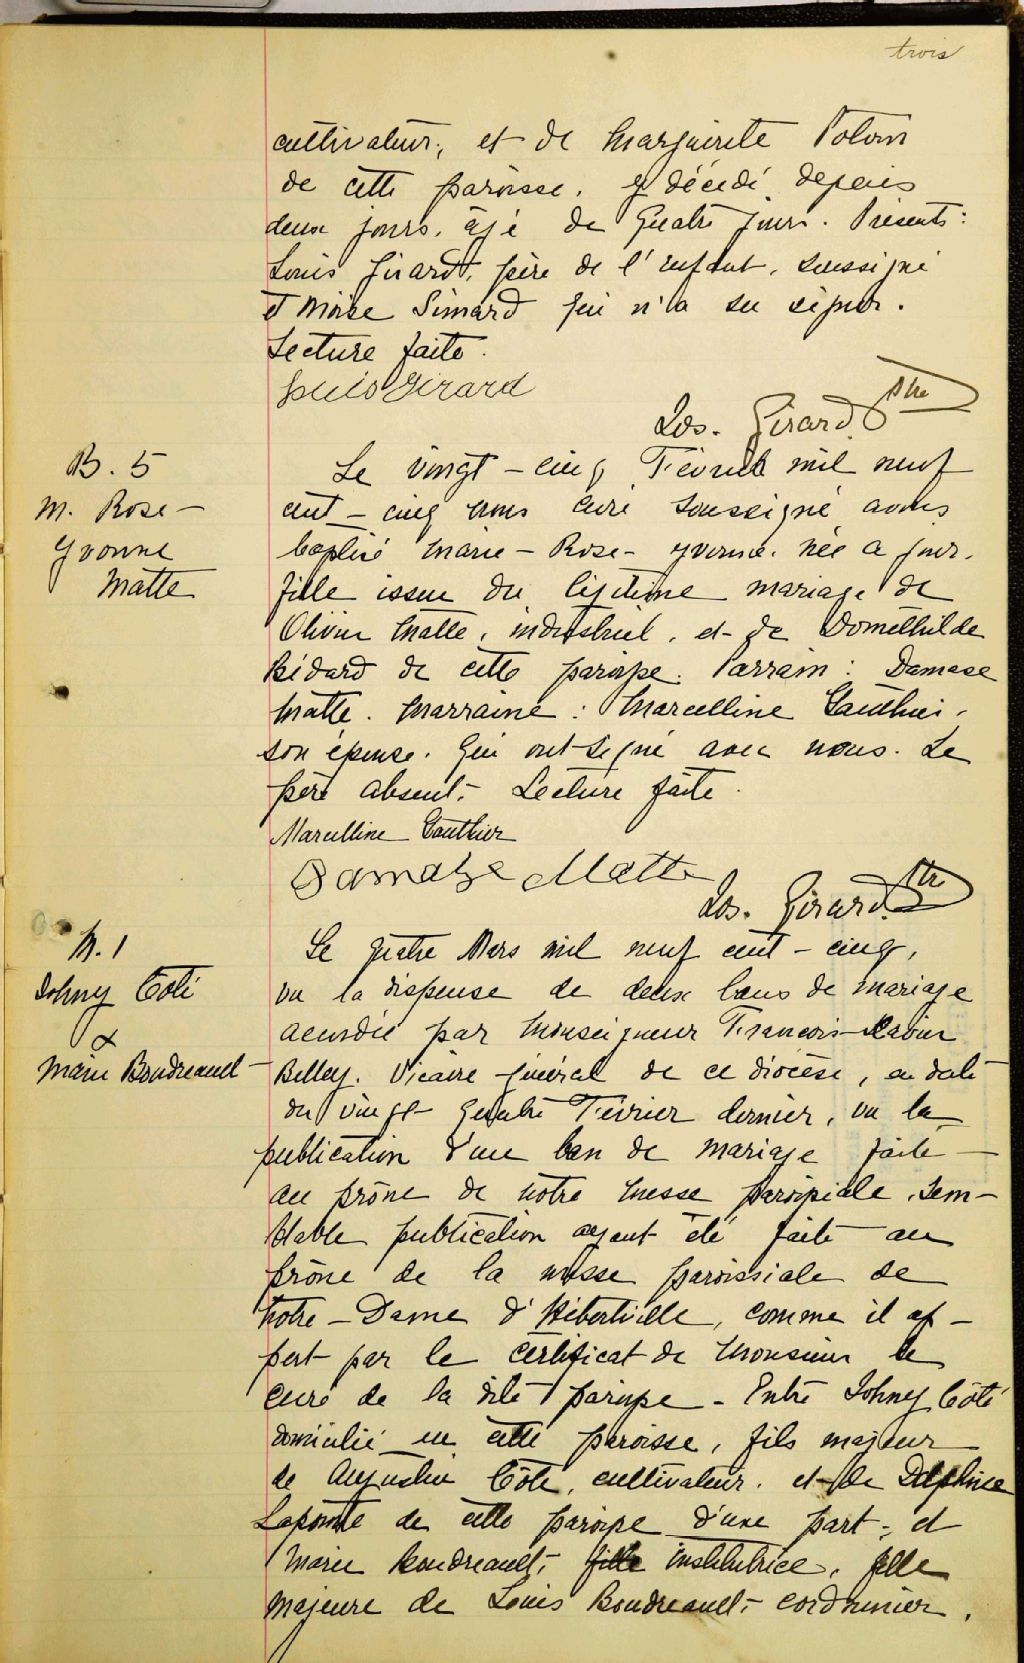 trois
cultivateur, et de Marguerite Potvin
de cette paroisse. y décédé depuis
deux jours, âgé de quatre jours. Présents:
Louis Girard, père de l'enfant, soussigné
et Moïse Simard qui n'a su signer.
Lecture faite.
Louis Girard
Jos. Girard Ptre
B. 5
M. Rose-
Yvonne
Matte
Le vingt-cinq Février mil neuf
cent-cinq nous curé soussigné avons
baptisé Marie-Rose-Yvonne. née ce jour.
fille issue du légitime mariage de
Olivier Matte, industriel, et de Domethilde
Bédard de cette paroisse. Parrain: Damase
Matte. Marraine: Marcelline Gauthier,
son épouse. Qui ont signé avec nous. Le
père absent. Lecture faite.
Marcelline Gauthier
Damase Matte
Jos. Girard Ptr
M. 1
Johny Coté
&
Marie Boudreault
Le quatre Mars mil neuf cent-cinq,
vu la dispense de deux bans de mariage
accordée par Monseigneur François-Xavier
Belley. Vicaire-général de ce diocèse, en date
du vingt-quatre Février dernier, vu la
publication d'un ban de mariage faite
au prône de notre messe paroissiale, sem-
blable publication ayant été faite au
prône de la messe paroissiale de
Notre-Dame d'Hébertville, comme il ap-
pert par le certificat de Monsieur le
curé de la dite paroisse - Entre Johny Côté
domicilié en cette paroisse, fils majeur
de Augustin Côté, cultivateur, et de Delphine
Lapointe de cette paroisse d'une part; et
Marie Boudreault, institutrice, fille
majeure de Louis Boudreault cordonnier,